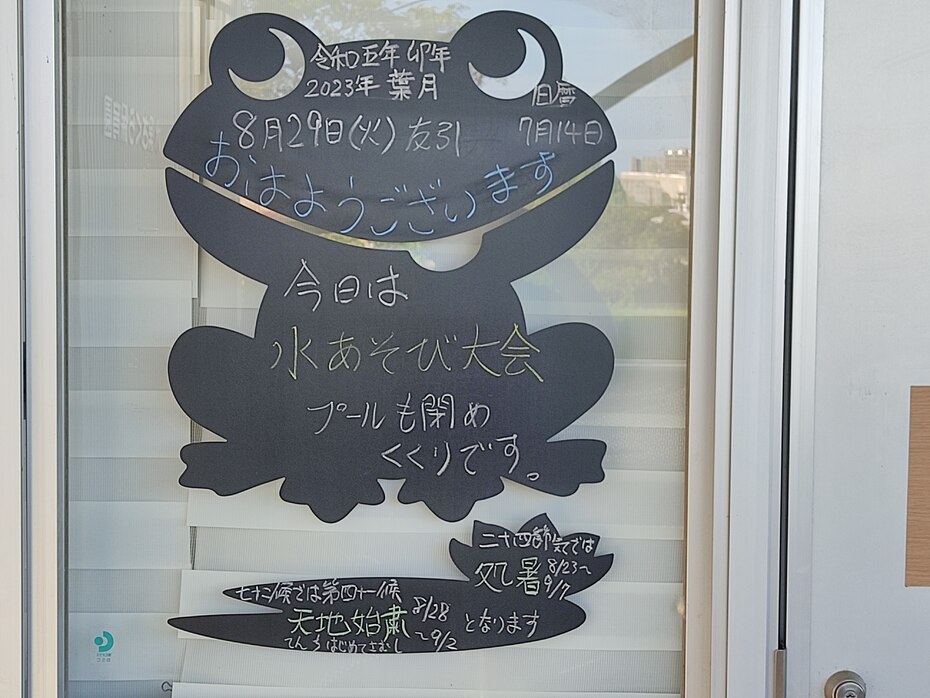 令和五年 卯年
2023年 葉月
旧暦
8月29日(火) 友引
7月14日
おはようございます
今日は
水あそび大会
プールも閉め
くくりです。
二十四節気では
処暑 8/23〜
9/7
七十二候では第四十一候
天地始粛 8/28
〜9/2
となります
てんちはじめてさむし